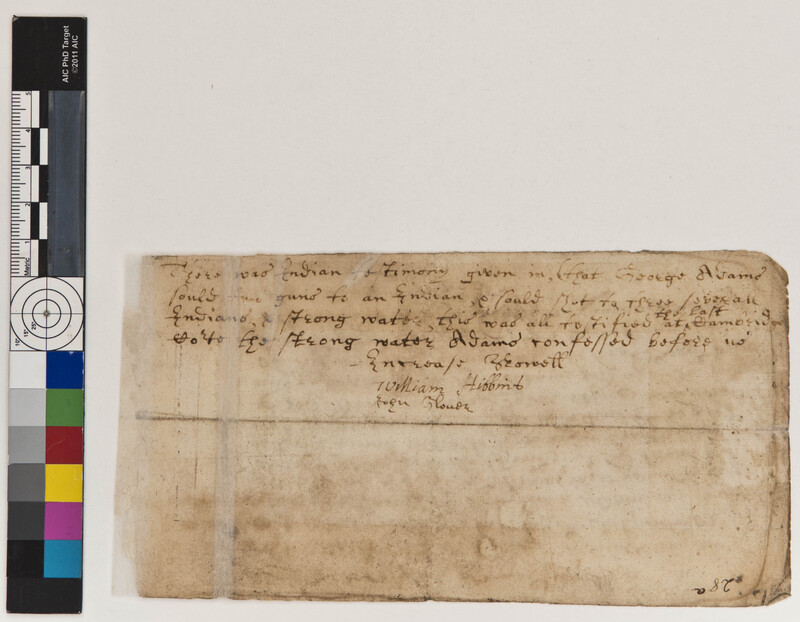 AIC PhD Target
©2011 AIC
There was Indian testimony given in, that George Adams
sould two guns to an Indian, & sould shot to three severall
Indians, & strong water, this was all testified at Cambridg
the last
Co'te the strong water Adams confessed before us
Encrease Nowell
William Hibbins
John Glover
Metric